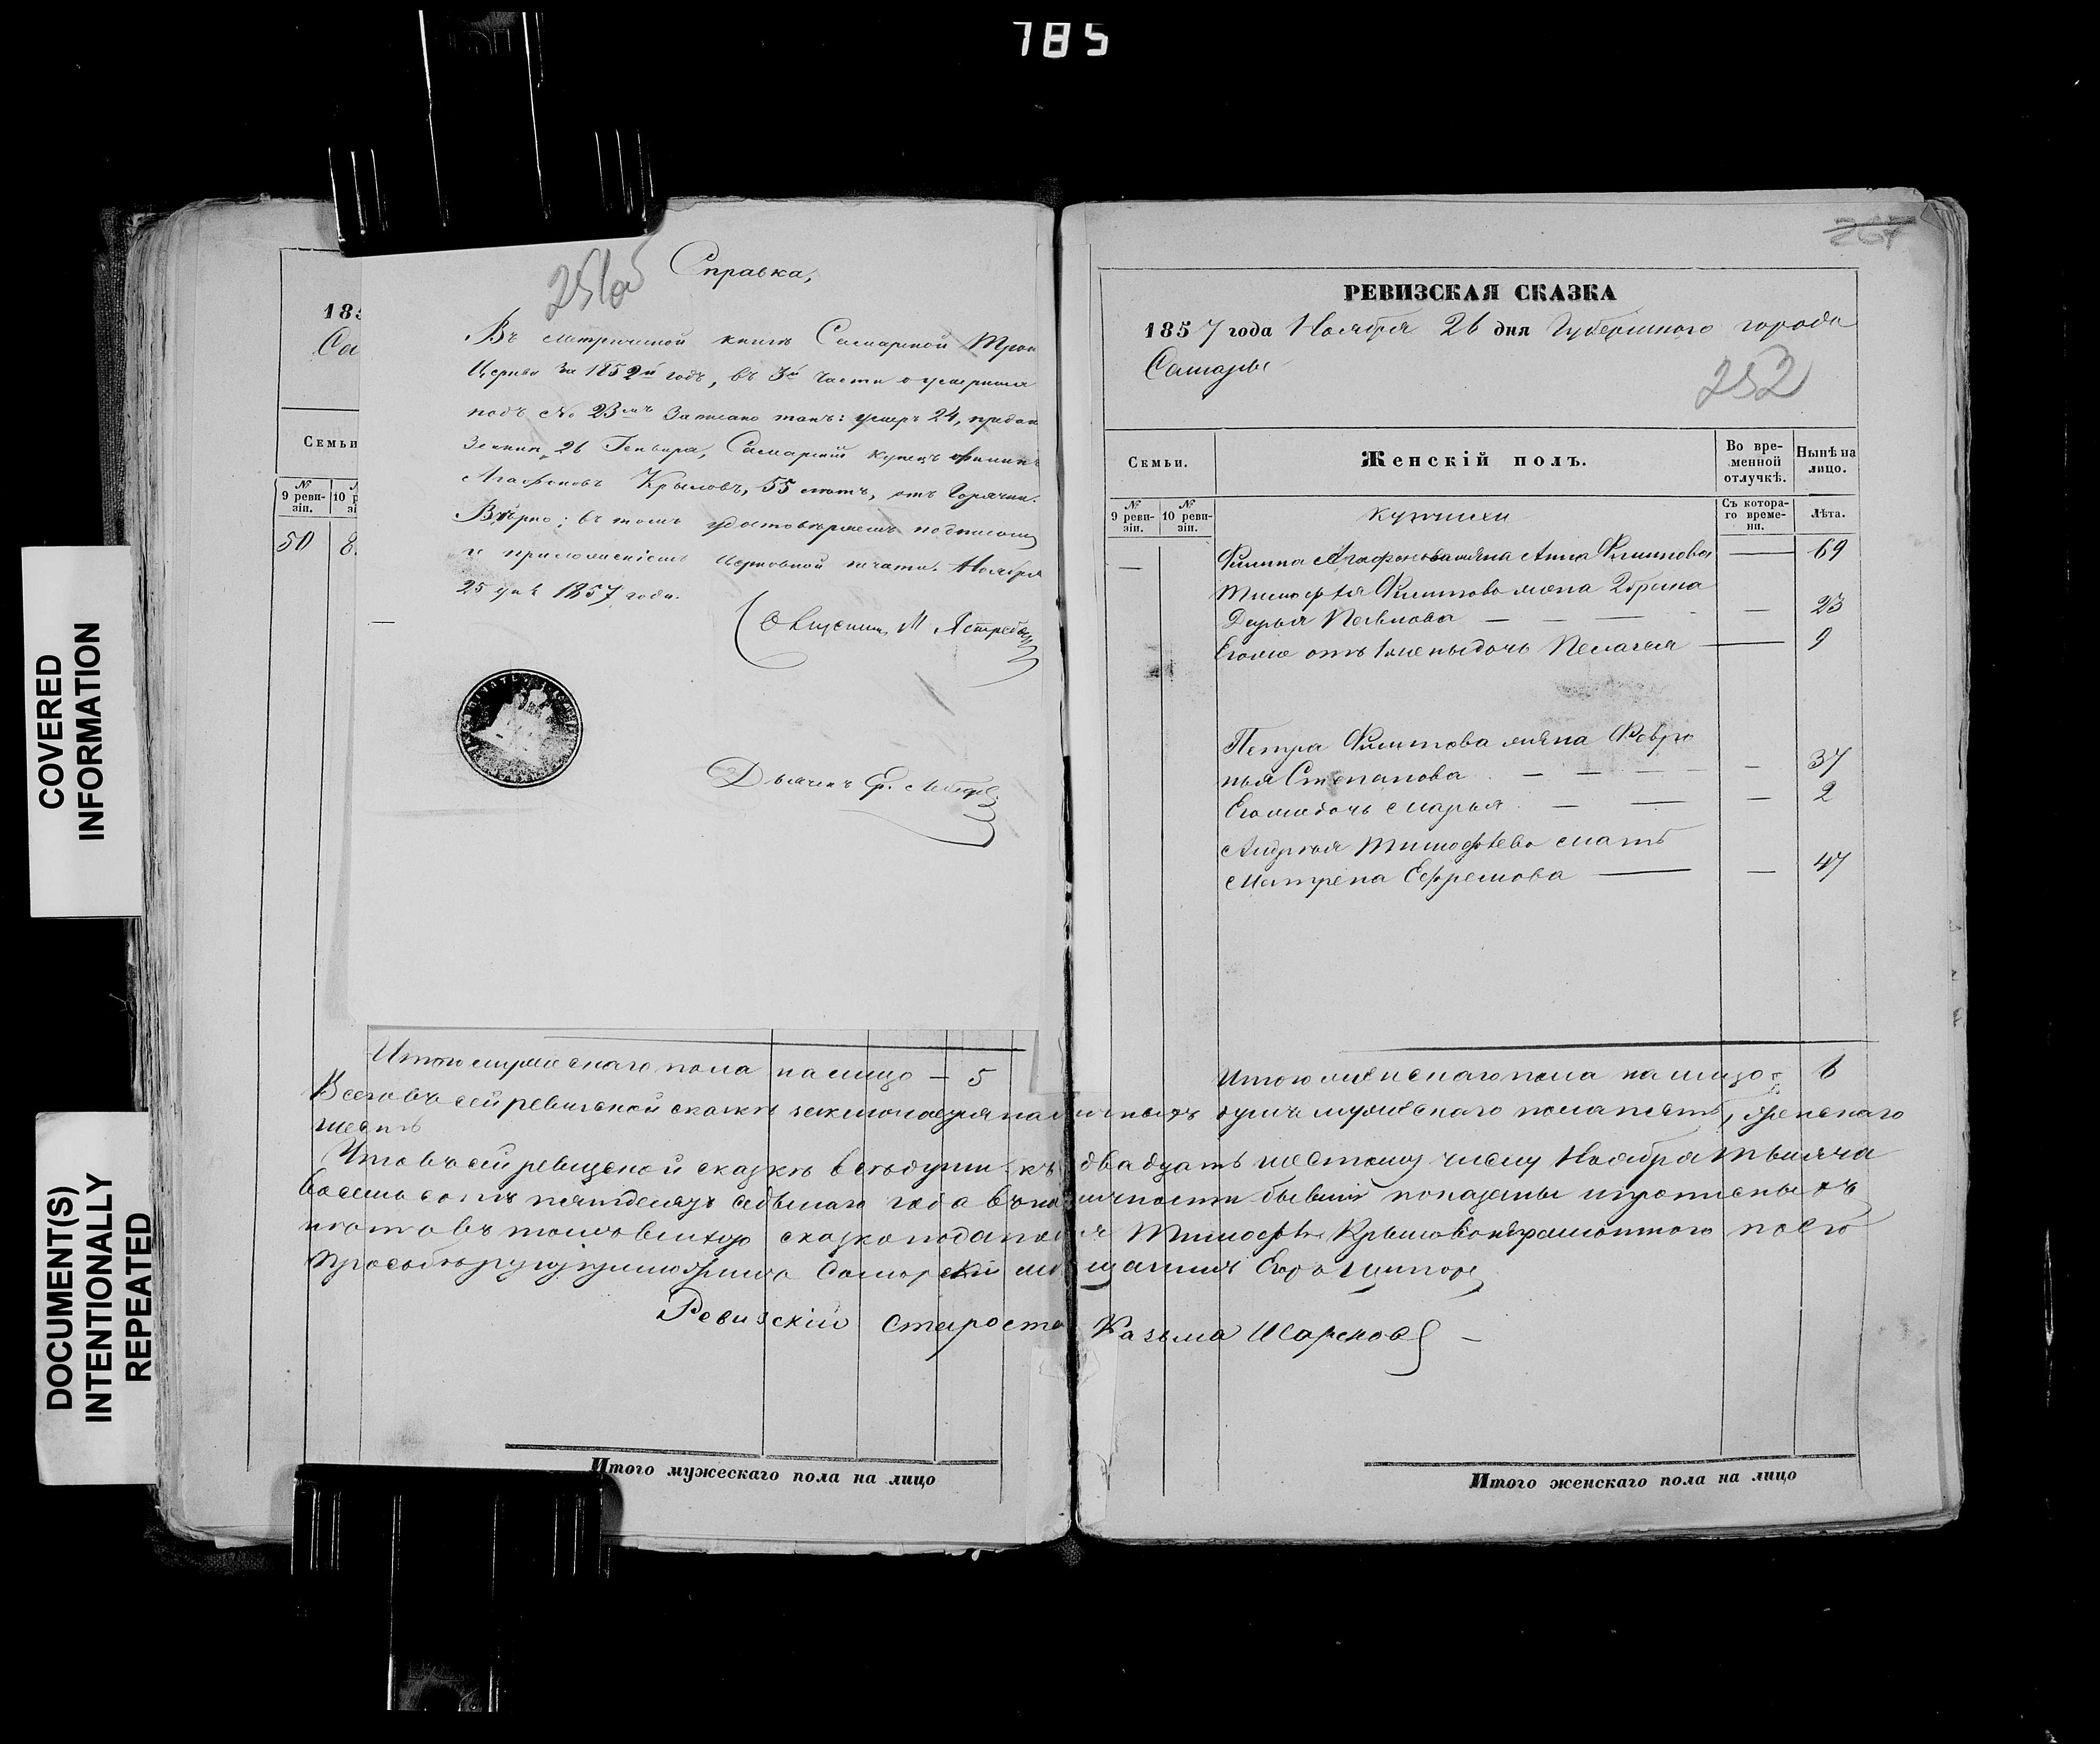 785
COVERED
INFORMATION
DOCUMENT(S)
INTENTIONALLY
REPEATED
185
Са
Семьи
№
9 реви-
зіи.
10 р
зі
50
8
251а
Справка,
Въ метрической книгѣ Самарской Трои
Церкви за 1852й годъ, въ 3й части о умершихъ
подъ № 23мъ записано такъ: умеръ 24, предан
земли 26 Генваря, Самарскій купецъ Филипъ
Агафоновъ Крыловъ, 55 лѣтъ, отъ горячки.
Вѣрно; въ томъ удостовѣряемъ подписомъ
и приложеніемъ церковной печати. Ноября
25 дня 1857 года.
Священникъ М Ястребо
Дьячекъ
Итого мужескаго пола на лицо — 5
Всего въ сей ревизской сказкѣ заключается наличныхъ душъ мужескаго пола пять, женскаго
шесть
Что въ сей ревизской сказкѣ всѣ души къ двадцать шестому числу Ноября тысяча
восемь сотъ пятьдесятъ седьмаго года въ наличности бывшіе показаны и прописныхъ
нѣтъ въ томъ сію сказку подалъ Тимофей Крыловъ неграмотного по его
прозьбѣ руку приложилъ Самарскій мещанинъ Егоръ
Ревизскій староста Казьма
Итого мужескаго пола на лицо
267
РЕВИЗСКАЯ СКАЗКА
1857 года Ноября 26 дня Губернскаго города
Самары
252
Семьи.
Женскій полъ.
Во вре-
менной
отлучкѣ.
Нынѣ на
лицо.
№
9 реви-
зіи.
№
10 реви-
зіи.
купчихи
Съ котора-
го време-
ни.
Лѣта.
— Филипа Агафонова жена Анна Филипова — 69
Тимофея Филипова жена 2 брака
Дарья Павлова — — — — 23
Его же отъ 1 жены дочь Пелагея — 9
Петра Филипова жена Февро
нья Степанова — — — — 37
Его же дочь Марья — — — 2
Андрея Тимофѣева мать
Матрена Ефремова — — 47
Итого женскаго пола на лицо 6
Итого женскаго пола на лицо